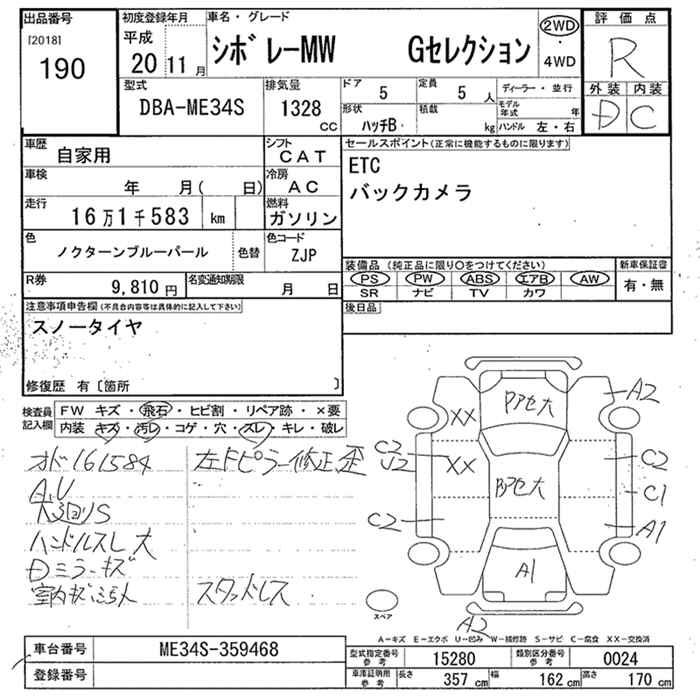 出品番号 初度登録年月 車名・グレード 2WD 評価点
[2018] 平成 シボレーMW Gセレクション ・ R
190 20 11月 4WD
型式 排気量 ドア 定員 ディーラー・並行 外装 内装
DBA-ME34S 1328 5 5人 モデル年式 年 D C
CC 形状 積載 ハンドル 左・右
ハッチB kg
車歴 シフト セールスポイント(正常に機能するものに限ります)
自家用 CAT ETC
車検 冷房 バックカメラ
年 月( 日) AC
走行 燃料
16万1千583 km ガソリン
色 色コード
ノクターンブルーパール 色替 ZJP
装備品 (純正品に限り○をつけてください) 新車保証書
R券 名変通知期限 PS PW ABS エアB AW 有・無
9,810円 月 日 SR ナビ TV カワ
注意事項申告欄(不具合内容等は具体的に記入して下さい) 後日品
スノータイヤ
修復歴 有〔箇所 〕
検査員 FW キズ・飛石・ヒビ割・リペア跡・×要
記入欄 内装 キズ・汚レ・コゲ・穴・スレ・キレ・破レ
オド161584 左Fピラー修正歪
A,U
下廻りS
ハンドルスレ大
Dミラーキズ
室内キズ汚れ大 スタッドレス
A2
XX アセ大
C2 J2 XX C2
アセ大 C1
C2 A1
A1
A2
スペア
A-キズ E-エクボ U-凹み W-補修跡 S-サビ C-腐食 XX-交換済
車台番号 ME34S-359468 型式指定番号 参考 15280 類別区分番号 参考 0024
登録番号 車庫証明用 参考 長さ 357 cm 幅 162 cm 高さ 170 cm